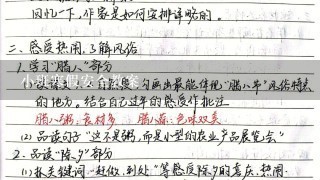 回忆一下,作家是如何安排详略的。
二、感受热闹,了解风俗
1. 学习“腊八”部分
勾画出最能体现“腊八节”风俗特点
的地方。结合自己过年的感受作批注
腊八粥:食材多 腊八蒜:色味双美
(2) 品读句子“这不是粥,而是小型的农业产品展览会”
2. 品读“除夕”部分
(1) 抓关键词“赶做、到处”等感受除夕的喜庆、热闹.
小班寒假安全教案